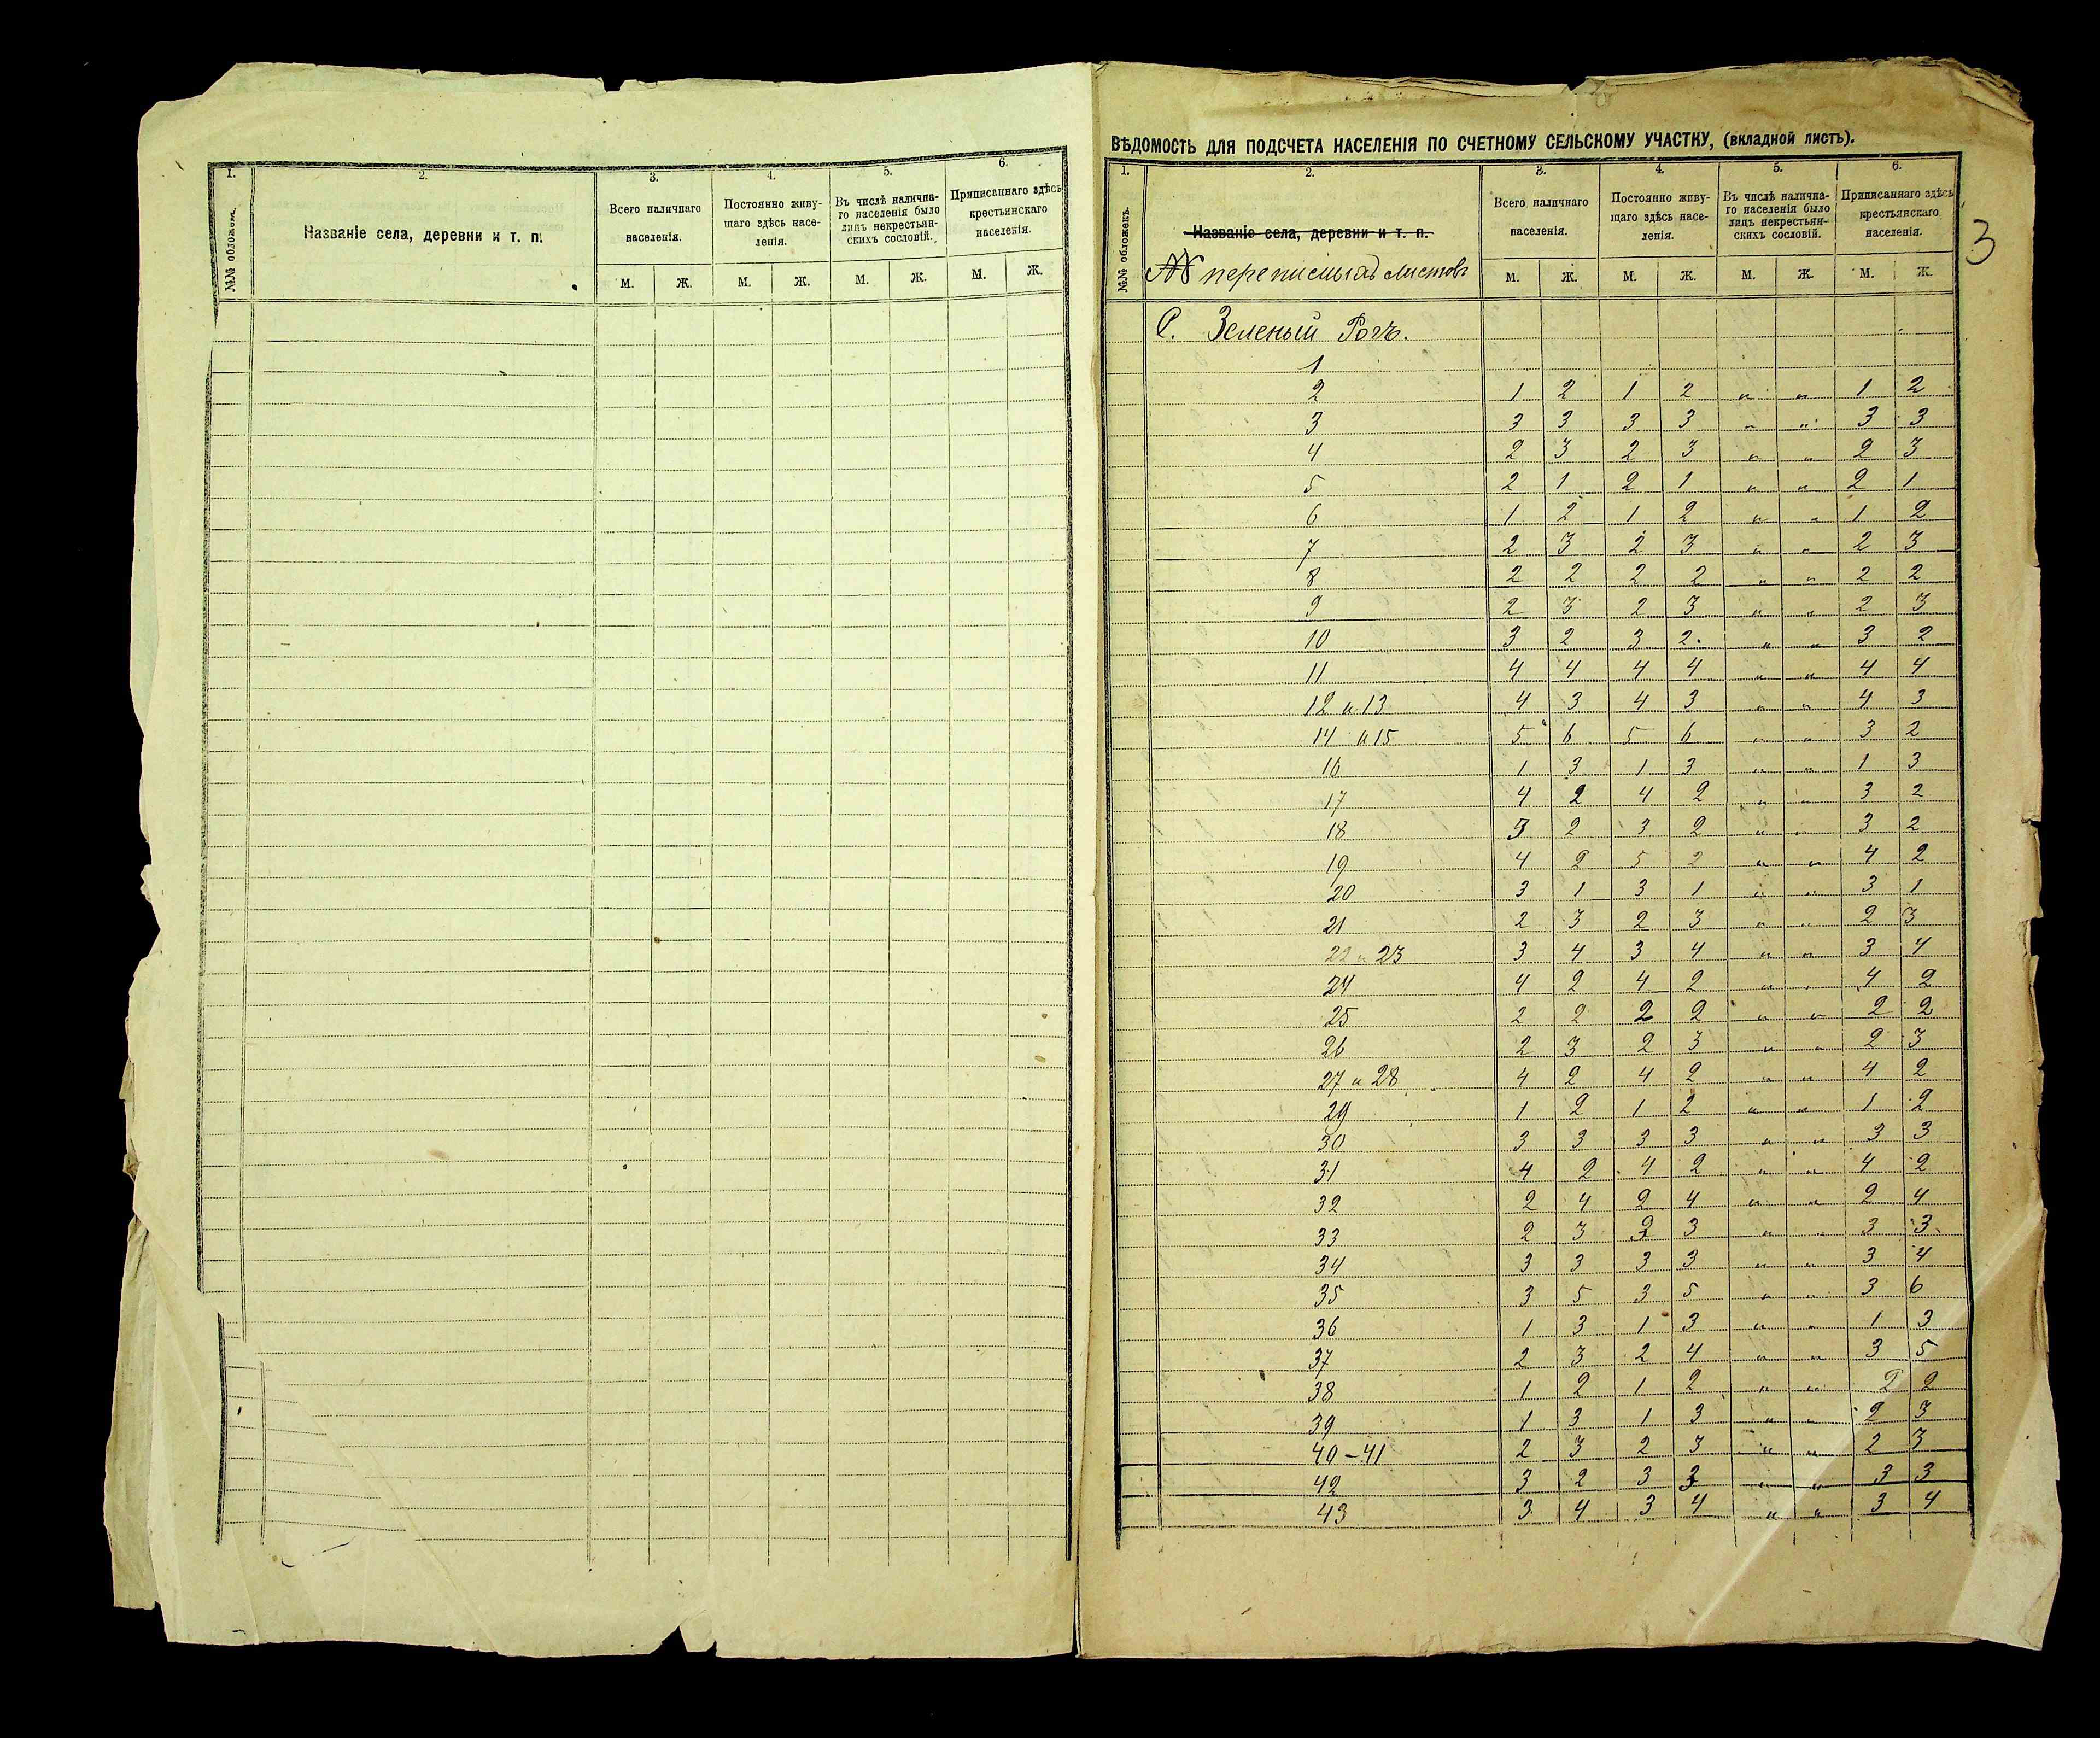 1. 2. 3. 4. 5. 6.
№№ обложек. Названіе села, деревни и т. п. Всего наличнаго населенія. Постоянно живущаго здѣсь населенія. Въ числѣ наличнаго населенія было лицъ некрестьянскихъ сословій. Приписаннаго здѣсь крестьянскаго населенія.
М. Ж. М. Ж. М. Ж. М. Ж.
ВѢДОМОСТЬ ДЛЯ ПОДСЧЕТА НАСЕЛЕНІЯ ПО СЧЕТНОМУ СЕЛЬСКОМУ УЧАСТКУ, (вкладной листъ).
3
1. 2. 3. 4. 5. 6.
№№ обложекъ. Названіе села, деревни и т. п. Всего наличнаго населенія. Постоянно живущаго здѣсь населенія. Въ числѣ наличнаго населенія было лицъ некрестьянскихъ сословій. Приписаннаго здѣсь крестьянскаго населенія.
№ переписныхъ листовъ М. Ж. М. Ж. М. Ж. М. Ж.
С. Зеленый Рогъ.
1
2 1 2 1 2 " " 1 2
3 3 3 3 3 " " 3 3
4 2 3 2 3 " " 2 3
5 2 1 2 1 " " 2 1
6 1 2 1 2 " " 1 2
7 2 3 2 3 " " 2 3
8 2 2 2 2 " " 2 2
9 2 3 2 3 " " 2 3
10 3 2 3 2 " " 3 2
11 4 4 4 4 " " 4 4
12 и 13 4 3 4 3 " " 4 3
14 и 15 5 6 5 6 " " 3 2
16 1 3 1 3 " " 1 3
17 4 2 4 2 " " 3 2
18 3 2 3 2 " " 3 2
19 4 2 5 2 " " 4 2
20 3 1 3 1 " " 3 1
21 2 3 2 3 " " 2 3
22 и 23 3 4 3 4 " " 3 4
24 4 2 4 2 " " 4 2
25 2 2 2 2 " " 2 2
26 2 3 2 3 " " 2 3
27 и 28 4 2 4 2 " " 4 2
29 1 2 1 2 " " 1 2
30 3 3 3 3 " " 3 3
31 4 2 4 2 " " 4 2
32 2 4 2 4 " " 2 4
33 2 3 3 " " 3 3
34 3 3 3 3 " " 3 4
35 3 5 3 5 " " 3 6
36 1 3 1 3 " " 1 3
37 2 3 2 4 " " 3 5
38 1 2 1 2 " " 2 2
39 1 3 1 3 " " 2 3
40–41 2 3 2 3 " " 2 3
42 3 2 3 3 " " 3 3
43 3 4 3 4 " " 3 4